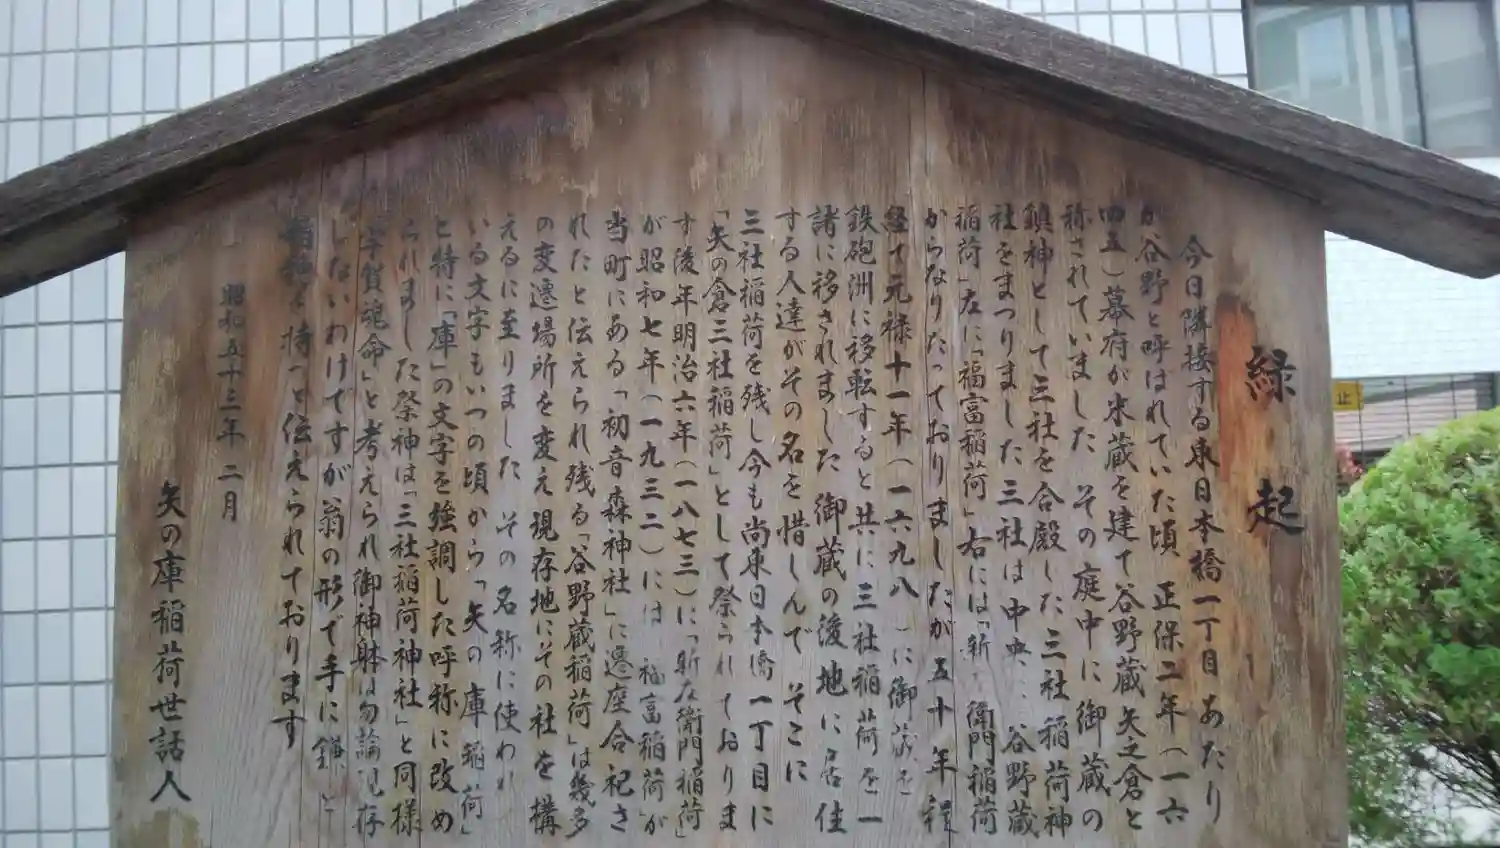 縁起
今日隣接する東日本橋一丁目あたり
が谷野と呼ばれていた頃 正保二年(一六
四五)幕府が米蔵を建て谷野蔵矢之倉と
称されていました その庭中に御蔵の
鎮神として三社を合殿した三社稲荷神
社をまつりました三社は中央 谷野蔵
稲荷」左に「福富稲荷」右には「新 衛門稲荷
からなりたっておりましたが五十年程
経て元禄十一年(一六九八 )に御蔵を
鉄砲洲に移転すると共に三社稲荷を一
諸に移されました御蔵の後地に居住
する人達がその名を惜しんで そこに
三社稲荷を残し今も尚東日本橋一丁目に
「矢の倉三社稲荷」として祭られておりま
す後年明治六年(一八七三)に「新左衛門稲荷」
が昭和七年(一九三二)には 福富稲荷が
当町にある「初音森神社」に遷座合祀さ
れたと伝えられ残る「谷野蔵稲荷」は幾多
の変遷場所を変え現存地にその社を構
えるに至りました その名称に使われ
いる文字もいつの頃から「矢の庫稲荷」
と特に「庫」の文字を強調した呼称に改め
られました祭神は「三社稲荷神社」と同様
字賀魂命」と考えられ御神躰は勿論現存
しないわけですが翁の形で手に鎌 と
稲穂を持つと伝えられております
昭和五十三年 二月
矢の庫稲荷世話人
止